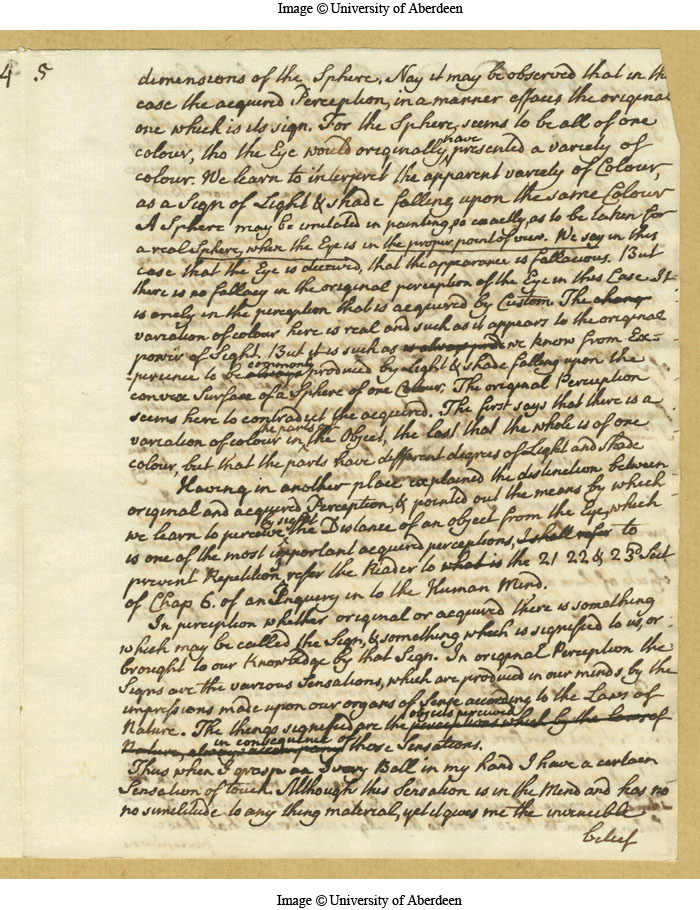 Image © University of Aberdeen
4 5
dimensions of the Sphere. Nay it may be observed that in th
case the acquired Perception, in a manner effaces the original
one which is its sign. For the Sphere seems to be all of one
have
colour, tho the Eye would originally presented a variety of
colour. We learn to interpret the apparent variety of Colour,
as a Sign of Light & shade falling upon the same Colour
A Sphere may be imitated in painting, so exactly, as to be taken for
a real Sphere, when the Eye is in the proper point of view. We say in this
case that the Eye is deceived, that the appearance is fallacious. But
there is no fallacy in the original perception of the Eye in this Case It
is onely in the perception that is acquired by Custom. The
variation of colour here is real and such as it appears to the original
power of Sight. But it is such as is always we know from Ex=
commonly
-perience to be always produced by Light & shade falling upon the
convex Surface of a Sphere of one Colour. The original Perception
seems here to contradict the acquired. The first says that there is a
the parts of
variation of colour in the Object, the last that the whole is of one
colour, but that the parts have different degrees of Light and Shade
Having in another place explained the distinction between
original and acquired Perception, & pointed out the means by which
by sight
we learn to perceive the Distance of an object from the Eye, which
is one of the most important acquired perceptions, I shall refer to
prevent Repetition, refer the Reader to what is the 21 22 & 23d Sect
of Chap 6. of an Inquery in to the Human Mind.
In perception whether original or acquired there is something
which may be called the Sign, & something which is signified to us, or
brought to our Knowledge by that Sign. In original Perception the
Signs are the various Sensations, which are produced in our minds by the
impressions made upon our organs of Sense according to the Laws of
objects perceived
Nature. The things signified are the perceptions which by the Laws of
in consequence of
Nature, always accompany those Sensations.
Thus when I grasp an Ivory Ball in my hand I have a certain
Sensation of touch. Although this Sensation is in the Mind and has no
no similitude to any thing material, yet it gives me the invincible
belief
Image © University of Aberdeen